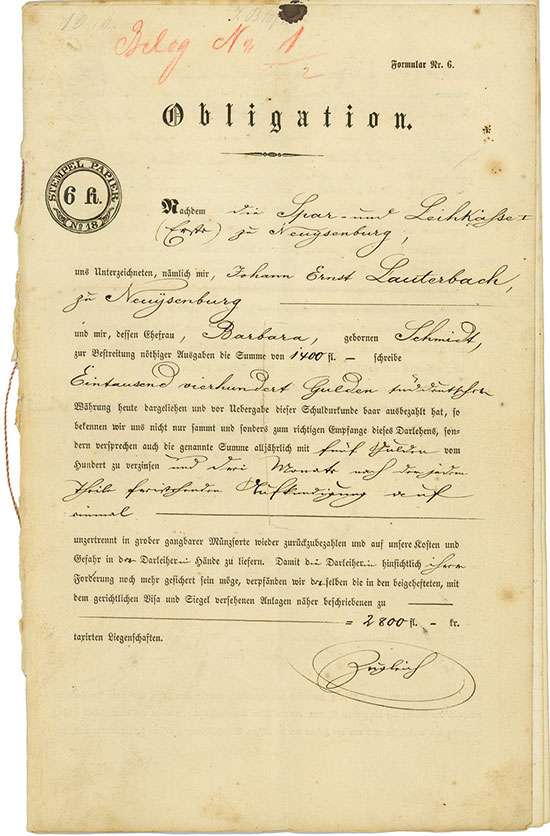 Beleg No 1/2
Formular Nr. 6.
Obligation.
STEMPEL PAPIER
6 k.
No 18.
Nachdem die Spar- und Leihkasse I
(Erste) zu Neuysenburg,
uns Unterzeichneten, nämlich mir, Johann Ernst Lauterbach,
zu Neuysenburg
und mir, dessen Ehefrau, Barbara, gebornen Schmidt,
zur Bestreitung nöthiger Ausgaben die Summe von 1400 fl. — schreibe
Eintausend vierhundert Gulden süddeutscher
Währung heute dargeliehen und vor Uebergabe dieser Schuldurkunde baar ausbezahlt hat, so
bekennen wir uns nicht nur sammt und sonders zum richtigen Empfange dieses Darlehens, son-
dern versprechen auch die genannte Summe alljährlich mit fünf Gulden vom
Hundert zu verzinsen und drei Monate nach der jedem
Theile freistehenden Aufkündigung auf
einmal
unzertrennt in grober gangbarer Münzsorte wieder zurückzubezahlen und auf unsere Kosten und
Gefahr in der Darleiherin Hände zu liefern. Damit die Darleiherin hinsichtlich ihrer
Forderung noch mehr gesichert sein möge, verpfänden wir derselben die in den beigehefteten, mit
dem gerichtlichen Visa und Siegel versehenen Anlagen näher beschriebenen zu
= 2800 fl. — kr.
taxirten Liegenschaften.
Zugleich